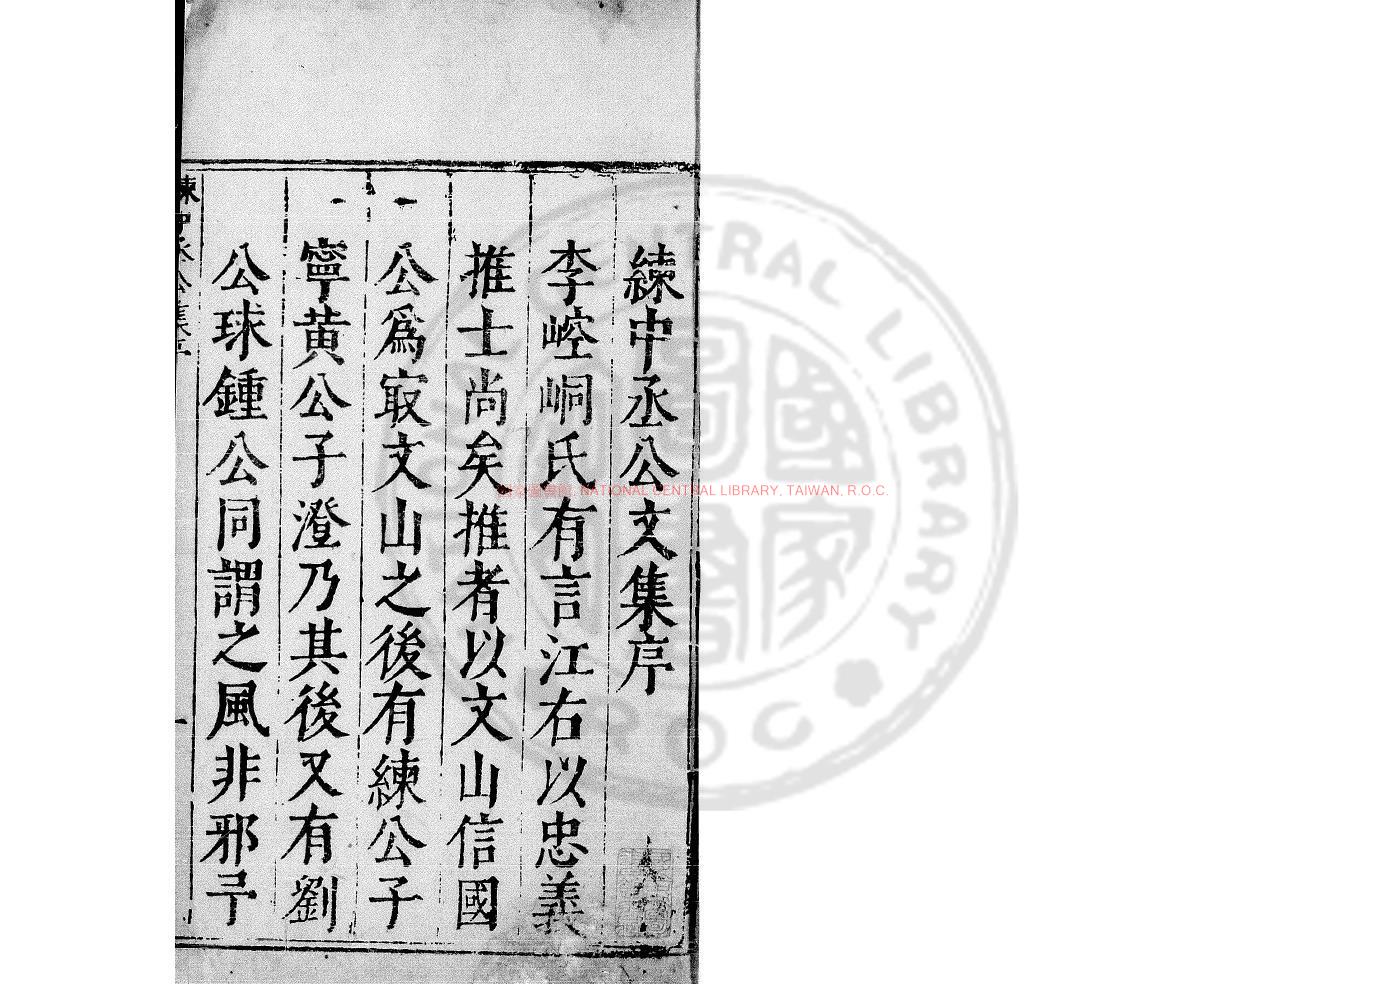 練中丞公文集序
李崆峒氏有言江右以忠義
推士尚矣推者以文山信國
公爲㝡文山之後有練公子
寧黄公子澄乃其後又有劉
公球鍾公同謂之風非邪予
練中丞公集序
一
NATIONAL CENTRAL LIBRARY, TAIWAN, R.O.C.
CENTRAL LIBRARY
ROC